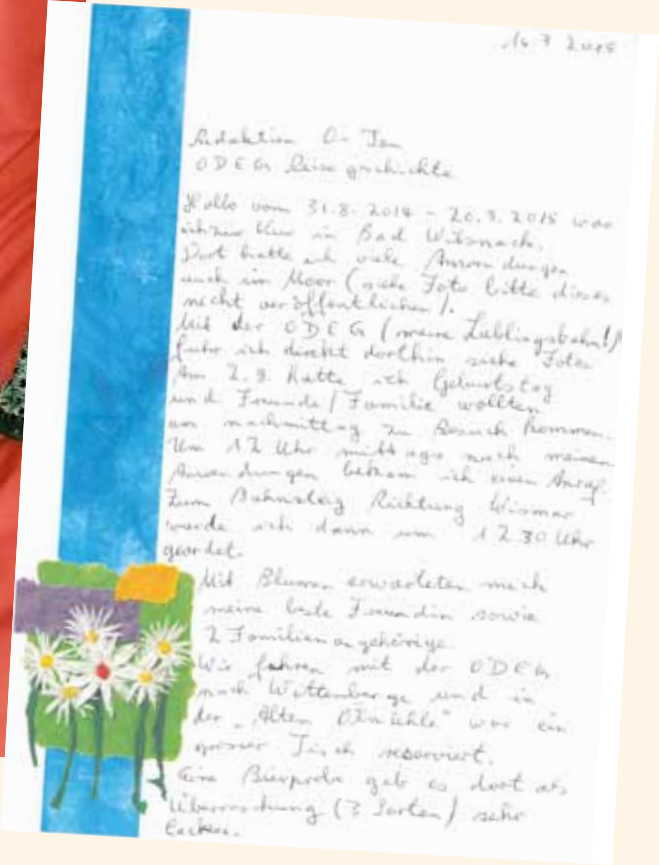 16.7 2015
Redaktion O-Ton
ODEG Reisegschichte
Hallo vom 31.8.2014 - 20.9.2015 war
ich zur Kur in Bad Wilsnack.
Dort hatte ich viele Anwendungen
auch im Moor (siehe Foto bitte dieses
nicht veröffentlichen).
Mit der ODEG (meine Lieblingsbahn!)
fuhr ich direkt dorthin siehe Fotos
Am 2.9. hatte ich Geburtstag
und Freunde/Familie wollten
am nachmittag zu Besuch kommen.
Um 12 Uhr mittags nach meinen
Anwendungen bekam ich einen Anruf.
Zum Bahnsteig Richtung Wismar
wurde ich dann um 12.30 Uhr
geordet.
Mit Blumen erwarteten mich
meine beste Freundin sowie
2 Familienangehörige.
Wir fuhren mit der ODEG
nach Wittenberge und in
der „Alten Ölmühle" war ein
grosser Tisch reserviert.
Eine Bierprobe gab es dort als
Überraschung (3 Sorten) sehr
lecker.